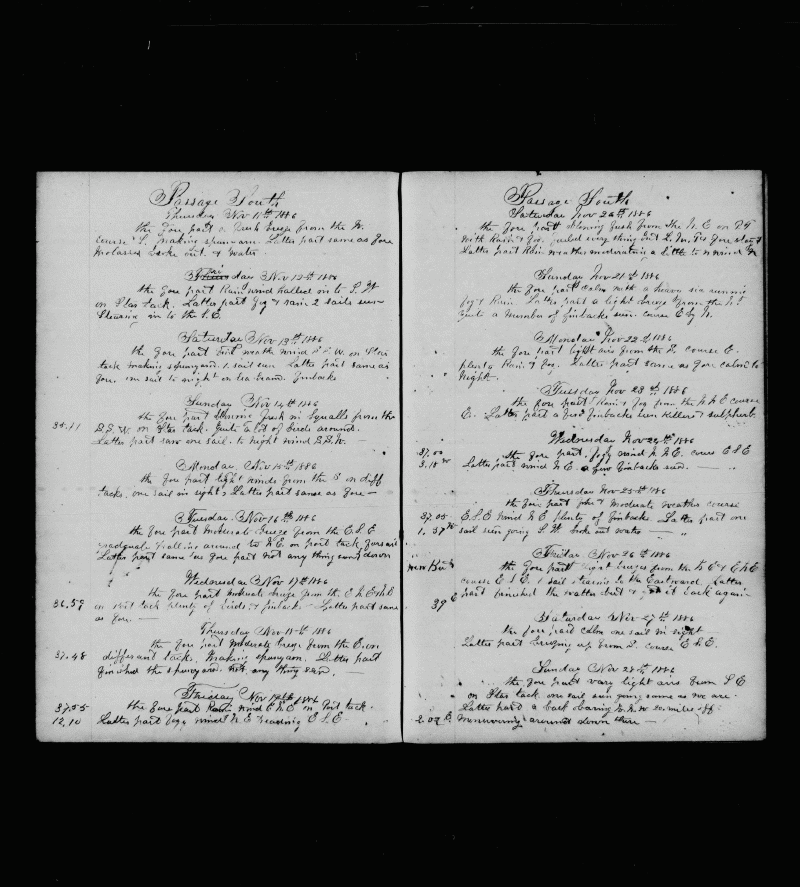 Passage South
Thursday Nov 11th 1886
the fore part a fresh breeze from the W.
course S. making spunyarn. Latter part same as fore
Molasses broke out. & water
Friday Nov 12th 1886
the fore part Rain wind hailed in to S. W
on Star tack. Latter part fog & rain 2 sails seen
Steering in to the S.E.
Saturday Nov 13th 1886
the fore part wind S S W. on Star
tack making spunyarn. 1 sail seen Latter part same as
fore, one sail to night on lea beam. finbacks
Sunday Nov 14th 1886
the fore part blowing fresh in Squalls from the
35.11 S.S.W. on Star tack. Quite a lot of birds around.
Latter part saw one sail. to night wind S.S.W. —
Monday Nov 15th 1886
the fore part light winds from the S on diff
tacks, one sail in sight. Latter part same as fore —
Tuesday. Nov 16th 1886
the fore part moderate breeze from the E.S.E
around to N.E. on port tack,
Latter part same as fore part not any thing down
Wednesday Nov 17th 1886
the fore part moderate breeze from the
36.59 on port tack plenty of birds & finback — Latter part same
as fore —
Thursday Nov 18th 1886
the fore part moderate breeze from the E. on
37.48 different tack. Making spunyarn. Latter part
finished the spunyarn. not any thing seen. —
Friday Nov 19th 1886
37.55 the fore part Rain wind on Port tack.
12.10 Latter part fogg wind N E heading E S E —
Passage South
Saturday Nov 20th 1886
the fore part blowing fresh from the N E on P T
with Rain & fog. furled every thing but
Latter part Rain weather moderating a little
Sunday Nov 21st 1886
the fore part calm with a heavy sea running
fog & Rain. Latter part a light breeze from the
quite a number of finbacks seen. course E by N.
Monday Nov 22nd 1886
the fore part light airs from the S. course E.
plenty Rain & fog. Latter part same as fore calm to
Night.
Tuesday Nov 23rd 1886
the fore part Rain & fog from the N N E course
E. Latter part a few finbacks seen killers & sulphurb
Wednesday Nov 24th 1886
37.00 the fore part, fogg wind N N E. cours E S E
3.18 Latter part wind N E. a few finbacks seen. —
Thursday Nov 25th 1886
the fore part fine & moderate weather course
37.05 E.S.E wind N E plenty of finbacks. Latter part one
1.37 sail seen going S. W. broke out water — "
Friday Nov 26th 1886
the fore part light breezes from the N E & E N E
course E S E. 1 sail steering to the Eastward. Latter
39 part finished the water but & put it back again
Saturday Nov 27th 1886
the fore part calm one sail in sight
Latter part breezing up from S. course E N E.
Sunday Nov 28th 1886
the fore part very light airs from S E
on Star tack one sail seen going same as we are.
Latter part a bark bearing 20 miles off.
2.07 E. manuvering around down there —